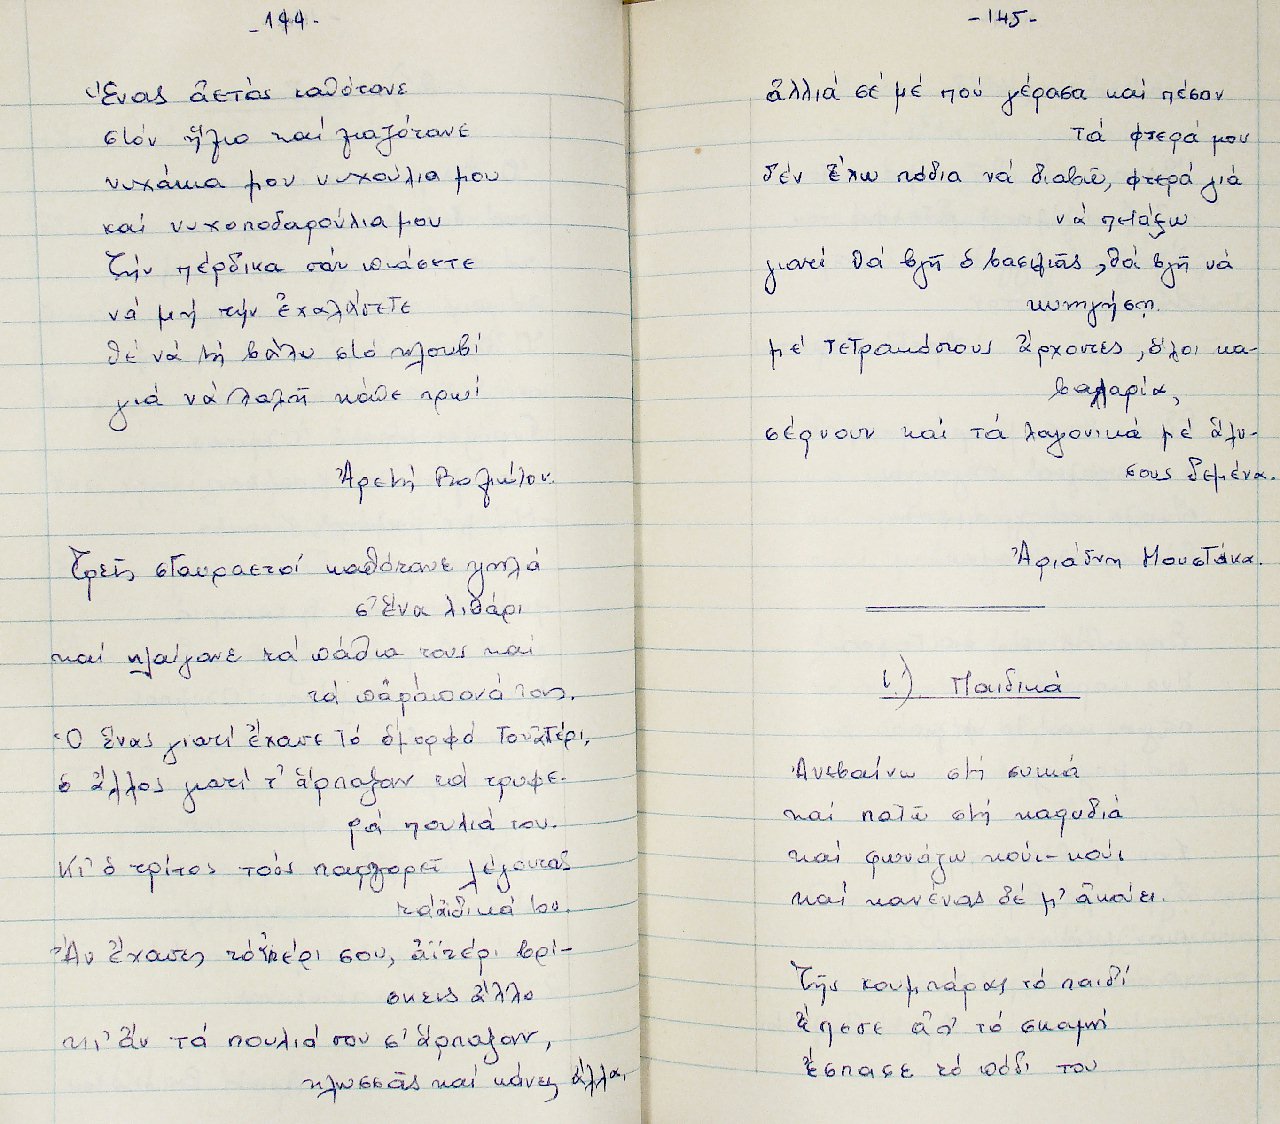 -144-
Ἕνας ἀετὸς καθότανε
στόν ἥλιο καί λιαζότανε
νυχάκια μου νυχούλια μου
καί νυχοποδαρούλια μου
Τήν πέρδικα σάν πιάσετε
νά μή τήν ἐχαλάσετε
θέ νά τή βάλω στό κλουβί
γιά νά λαλῆ κάθε πρωί
Ἀρετή
Τρεῖς σταυραετοί καθότανε ψηλά
σ' ἕνα λιθάρι
καί κλαίγανε τά πάθια τους καί
τά παράπονά τους.
Ὁ ἕνας γιατί ἔχασε τό ὄμορφό του ταίρι,
ὁ ἄλλος γιατί τ' ἅρπαξαν τά τρυφε-
ρά πουλιά του.
Κι' ὁ τρίτος τούς παρηγορεῖ λέγοντας
τά δικά του.
Ἄν ἔχασες τό τέρι σου, ἀϊτέρι βρί-
σκεις ἄλλο
κι' ἄν τά πουλιά σου σ' ἅρπαξαν,
κλωσσᾶς καί κάνεις ἄλλα.
-145-
ἀλλιά σέ μέ πού γέρασα καί πέσαν
τά φτερά μου
δέν ἔχω πόδια νά διαβῶ, φτερά γιά
νά πετάξω
γιατί θά βγῆ ὁ βασιλιᾶς, θά βγῆ νά
κυνηγήση.
μέ τετρακόσιους ἄρχοντες, ὅλοι κα-
βαλαρία,
σέρνουν καί τά λαγονικά μέ ἅλυ-
σους δεμένα.
Ἀριάδνη Μουστάκα.
ι) Παιδικά
Ἀνεβαίνω στή συκιά
καί πατῶ στή καρυδιά
καί φωνάζω κούι-κούι
καί κανένας δέ μ' ἀκούει.
Τῆς κουμπάρας τό παιδί
ἔπεσε ἀπ' τό σκαμνί
ἔσπασε τό πόδι του